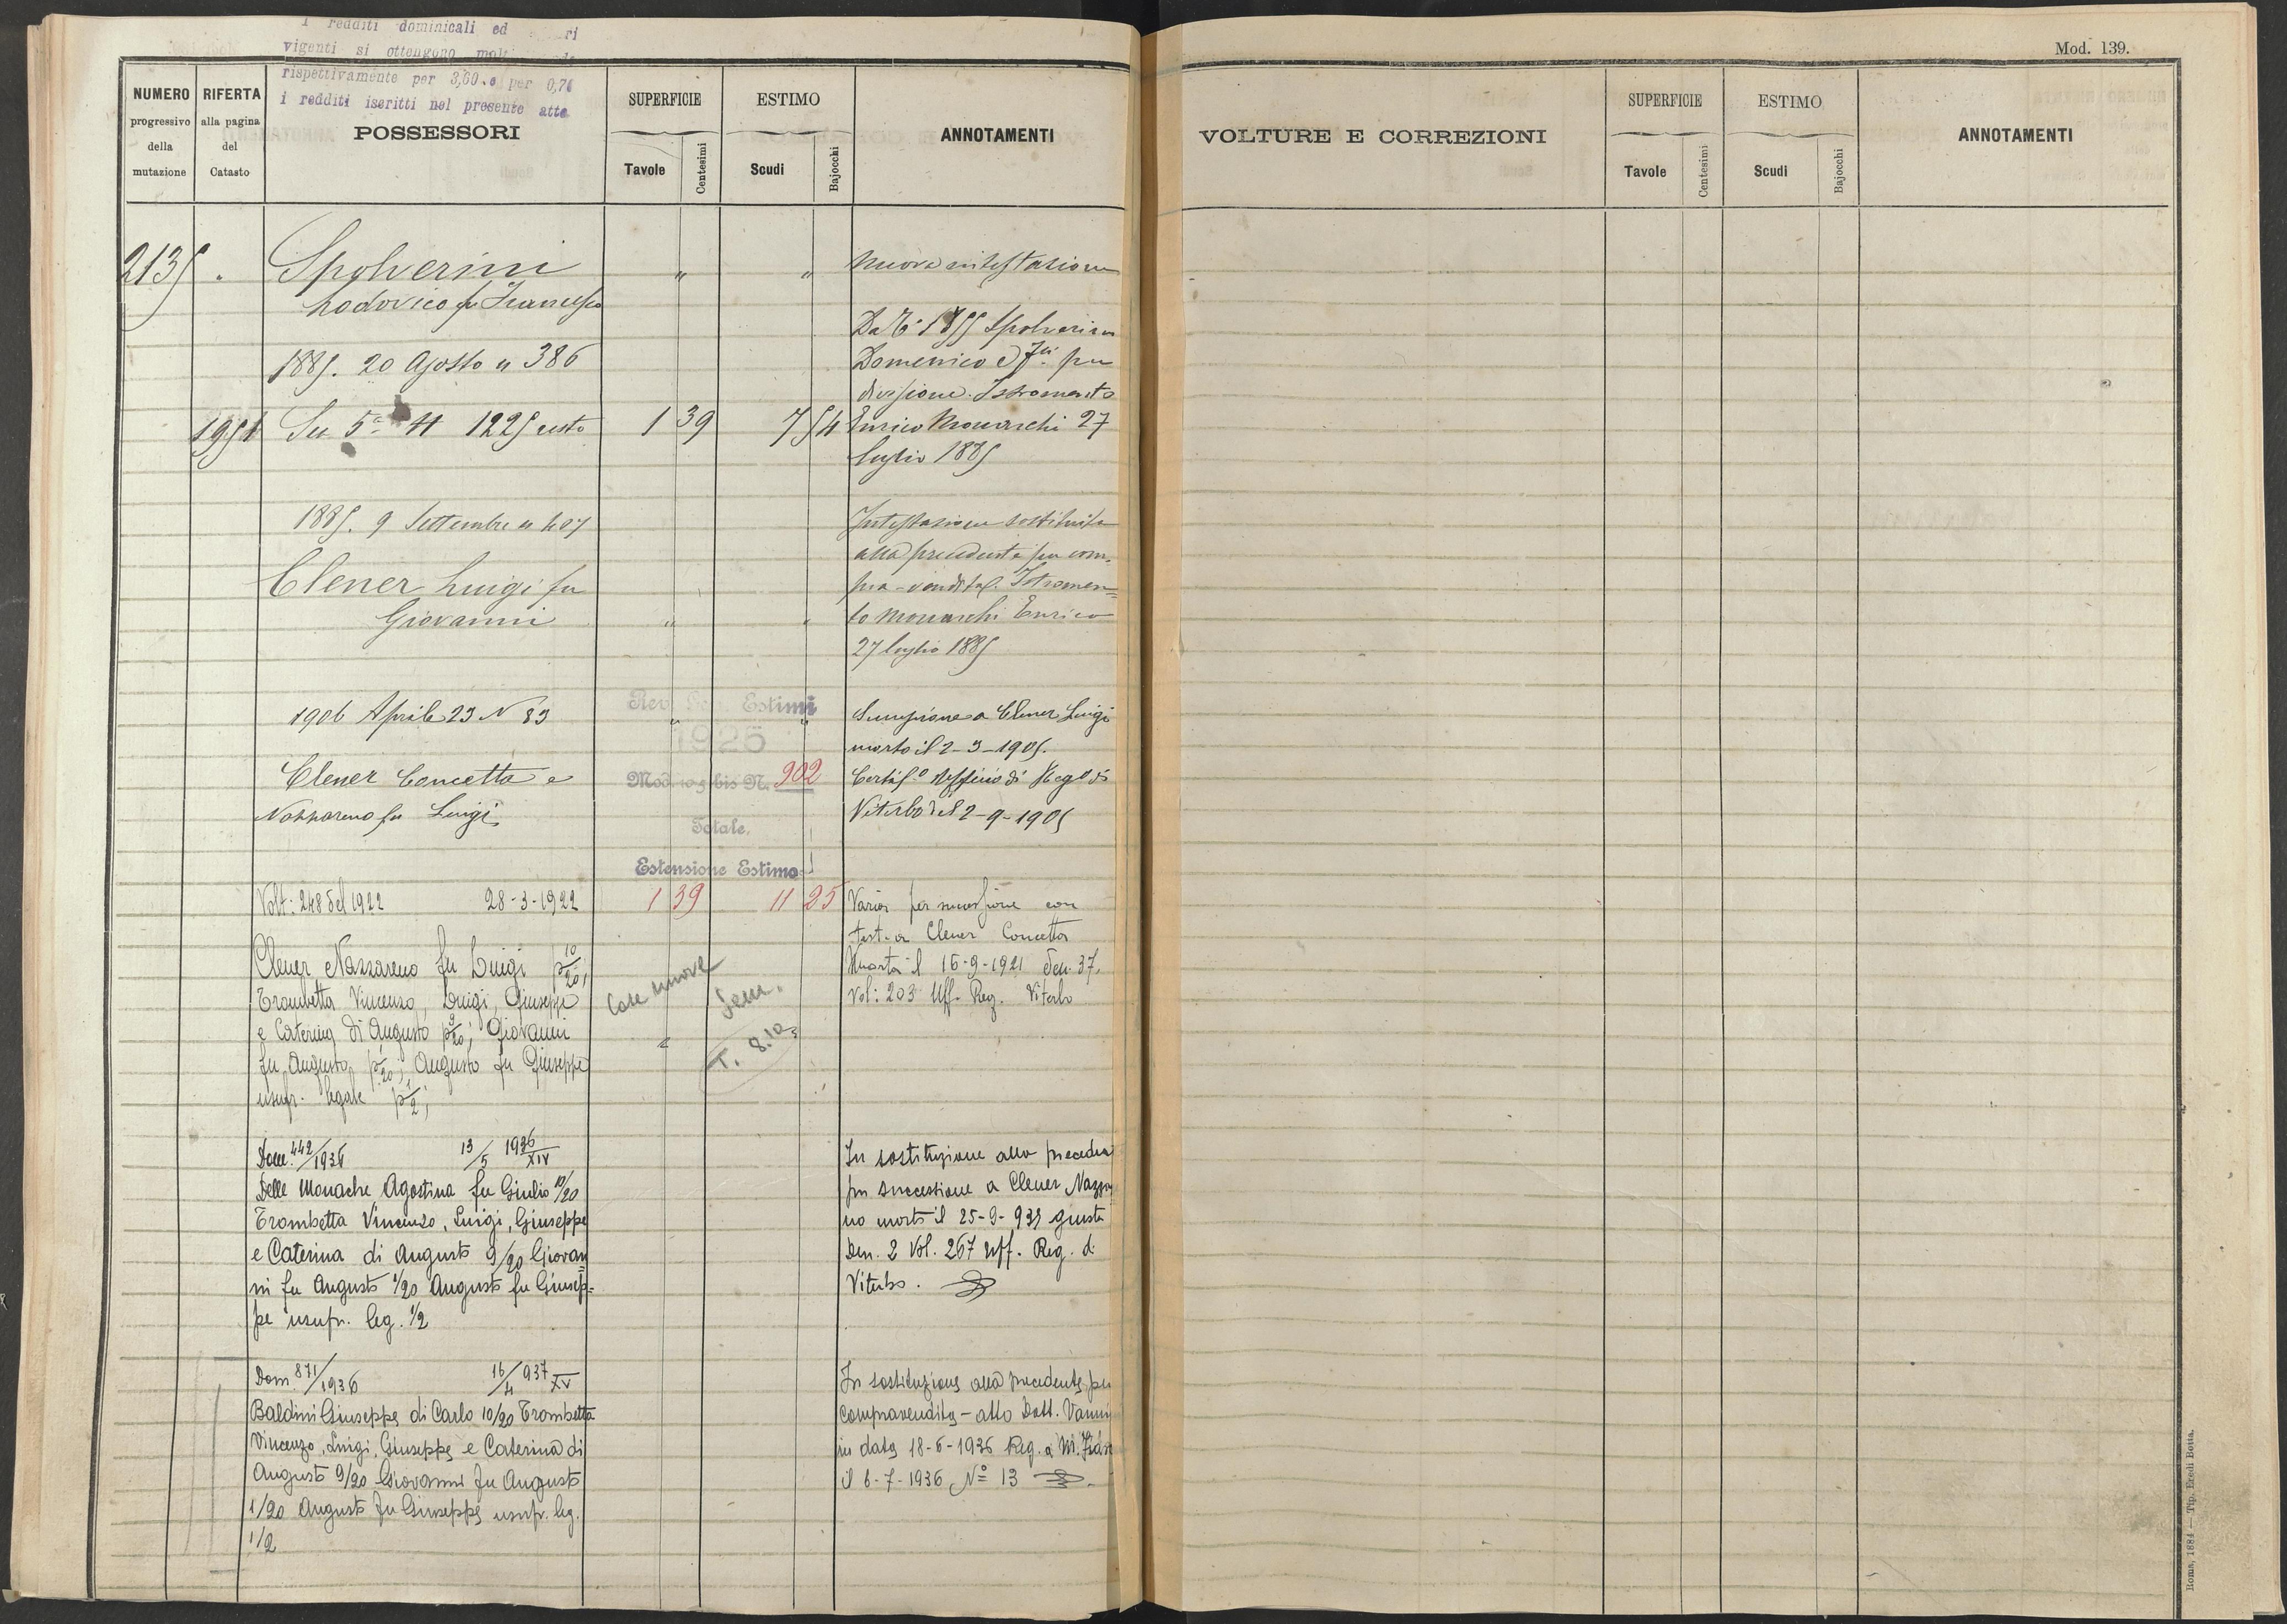 I redditi dominicali ed
vigenti si ottengono
rispettivamente per 3,60 e per 0,70
i redditi iscritti nel presente atto
Mod. 139.
NUMERO progressivo della mutazione
RIFERTA alla pagina del Catasto
POSSESSORI
SUPERFICIE
Tavole
Centesimi
ESTIMO
Scudi
Bajocchi
ANNOTAMENTI
VOLTURE E CORREZIONI
SUPERFICIE
Tavole
Centesimi
ESTIMO
Scudi
Bajocchi
ANNOTAMENTI
2135 . Spolverini " " Nuova intestazione
Lodovico fu Francesco
Spolverini
1885. 20 Agosto n 386 Domenico e
divisione. Istromento
1 39 7 54 Enrico Monarchi 27
luglio 1885
1885. 9 Settembre n 407 Intestazione sostituita
alla precedente per com
Clener Luigi fu pra-vendita. Istromen=
Giovanni " " to Monarchi Enrico
27 luglio 1885
Rev. Estimi
1906 Aprile 23 N 83 " " Successione a Clener Luigi
1926 morto il 2-3-1905.
Clener Concetta e Mod. 103 bis N. 902
Nazzareno fu Luigi Viterbo del 2-9-1905
Totale.
Estensione Estimo
Volt: 248 del 1922 28-3-1922 1 39 11 25 Varia per successione con
test. a Clener Concetta
Clener Nazzareno fu Luigi p 10/20, Morta il 16-9-1921 Den. 37,
Trombetta Vincenzo, Luigi, Giuseppe Case nuove Vol: 203 Uff. Reg. Viterbo
e Caterina di Augusto p 9/20; Giovanni
T. 8.10
fu Augusto p 1/20; Augusto fu Giuseppe
usufr. legale p 1/2;
Dom. 442/1936 13/5 1936 XIV In sostituzione alla preceden
Delle Monache Agostina fu Giulio 10/20 per successione a Clener Nazza
Trombetta Vincenzo, Luigi, Giuseppe no morto il 25-9-935 giusta
e Caterina di Augusto 9/20 Giovan Den. 2 Vol. 267 Uff. Reg. di
ni fu Augusto 1/20 Augusto fu Giusep- Viterbo.
pe usufr. leg. 1/2
Dom. 871/1936 16/4 937 XV In sostituzione alla precedente per
Baldini Giuseppe di Carlo 10/20 Trombetta compravendita - atto Dott. Vannin
Vincenzo, Luigi, Giuseppe e Caterina di in data 18-6-1936 Reg. a M. Fiasc
Augusto 9/20 Giovanni fu Augusto il 6-7-1936 Nº 13
1/20 Augusto fu Giuseppe usufr. leg.
1/2
Roma, 1884 — Tip. Eredi Botta.